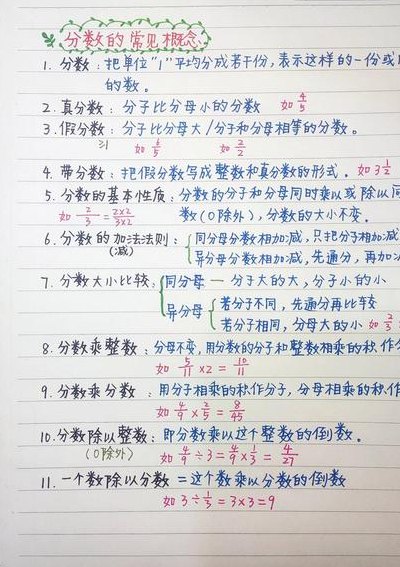 分数的常见概念
1. 分数：把单位"1"平均分成若干份，表示这样的一份或
的数。
2. 真分数：分子比分母小的分数 如 4/5
3. 假分数：分子比分母大/分子和分母相等的分数。
≥1 如 6/5 如 2/2
4. 带分数：把假分数写成整数和真分数的形式。如 3 1/2
5. 分数的基本性质：分数的分子和分母同时乘以或除以同
如 2/3 = 2×2/3×2 数（0除外），分数的大小不变。
6. 分数的加法法则：同分母分数相加减，只把分子相加减
（减） 异分母分数相加减，先通分，再加
7. 分数大小比较：同分母 — 分子大的大，分子小的小
异分母 若分子不同，先通分再比较
若分子相同，分母大的小 如 2/3
8. 分数乘整数：分母不变，用分数的分子和整数相乘的积作分
如 5/11 × 2 = 10/11
9. 分数乘分数：用分子相乘的积作分子，分母相乘的积作
如 4/9 × 2/5 = 8/45
10. 分数除以整数：即分数乘以这个整数的倒数。
（0除外） 如 4/9 ÷ 3 = 4/9 × 1/3 = 4/27
11. 一个数除以分数 = 这个数乘以分数的倒数
如 3 ÷ 1/3 = 3×3 = 9